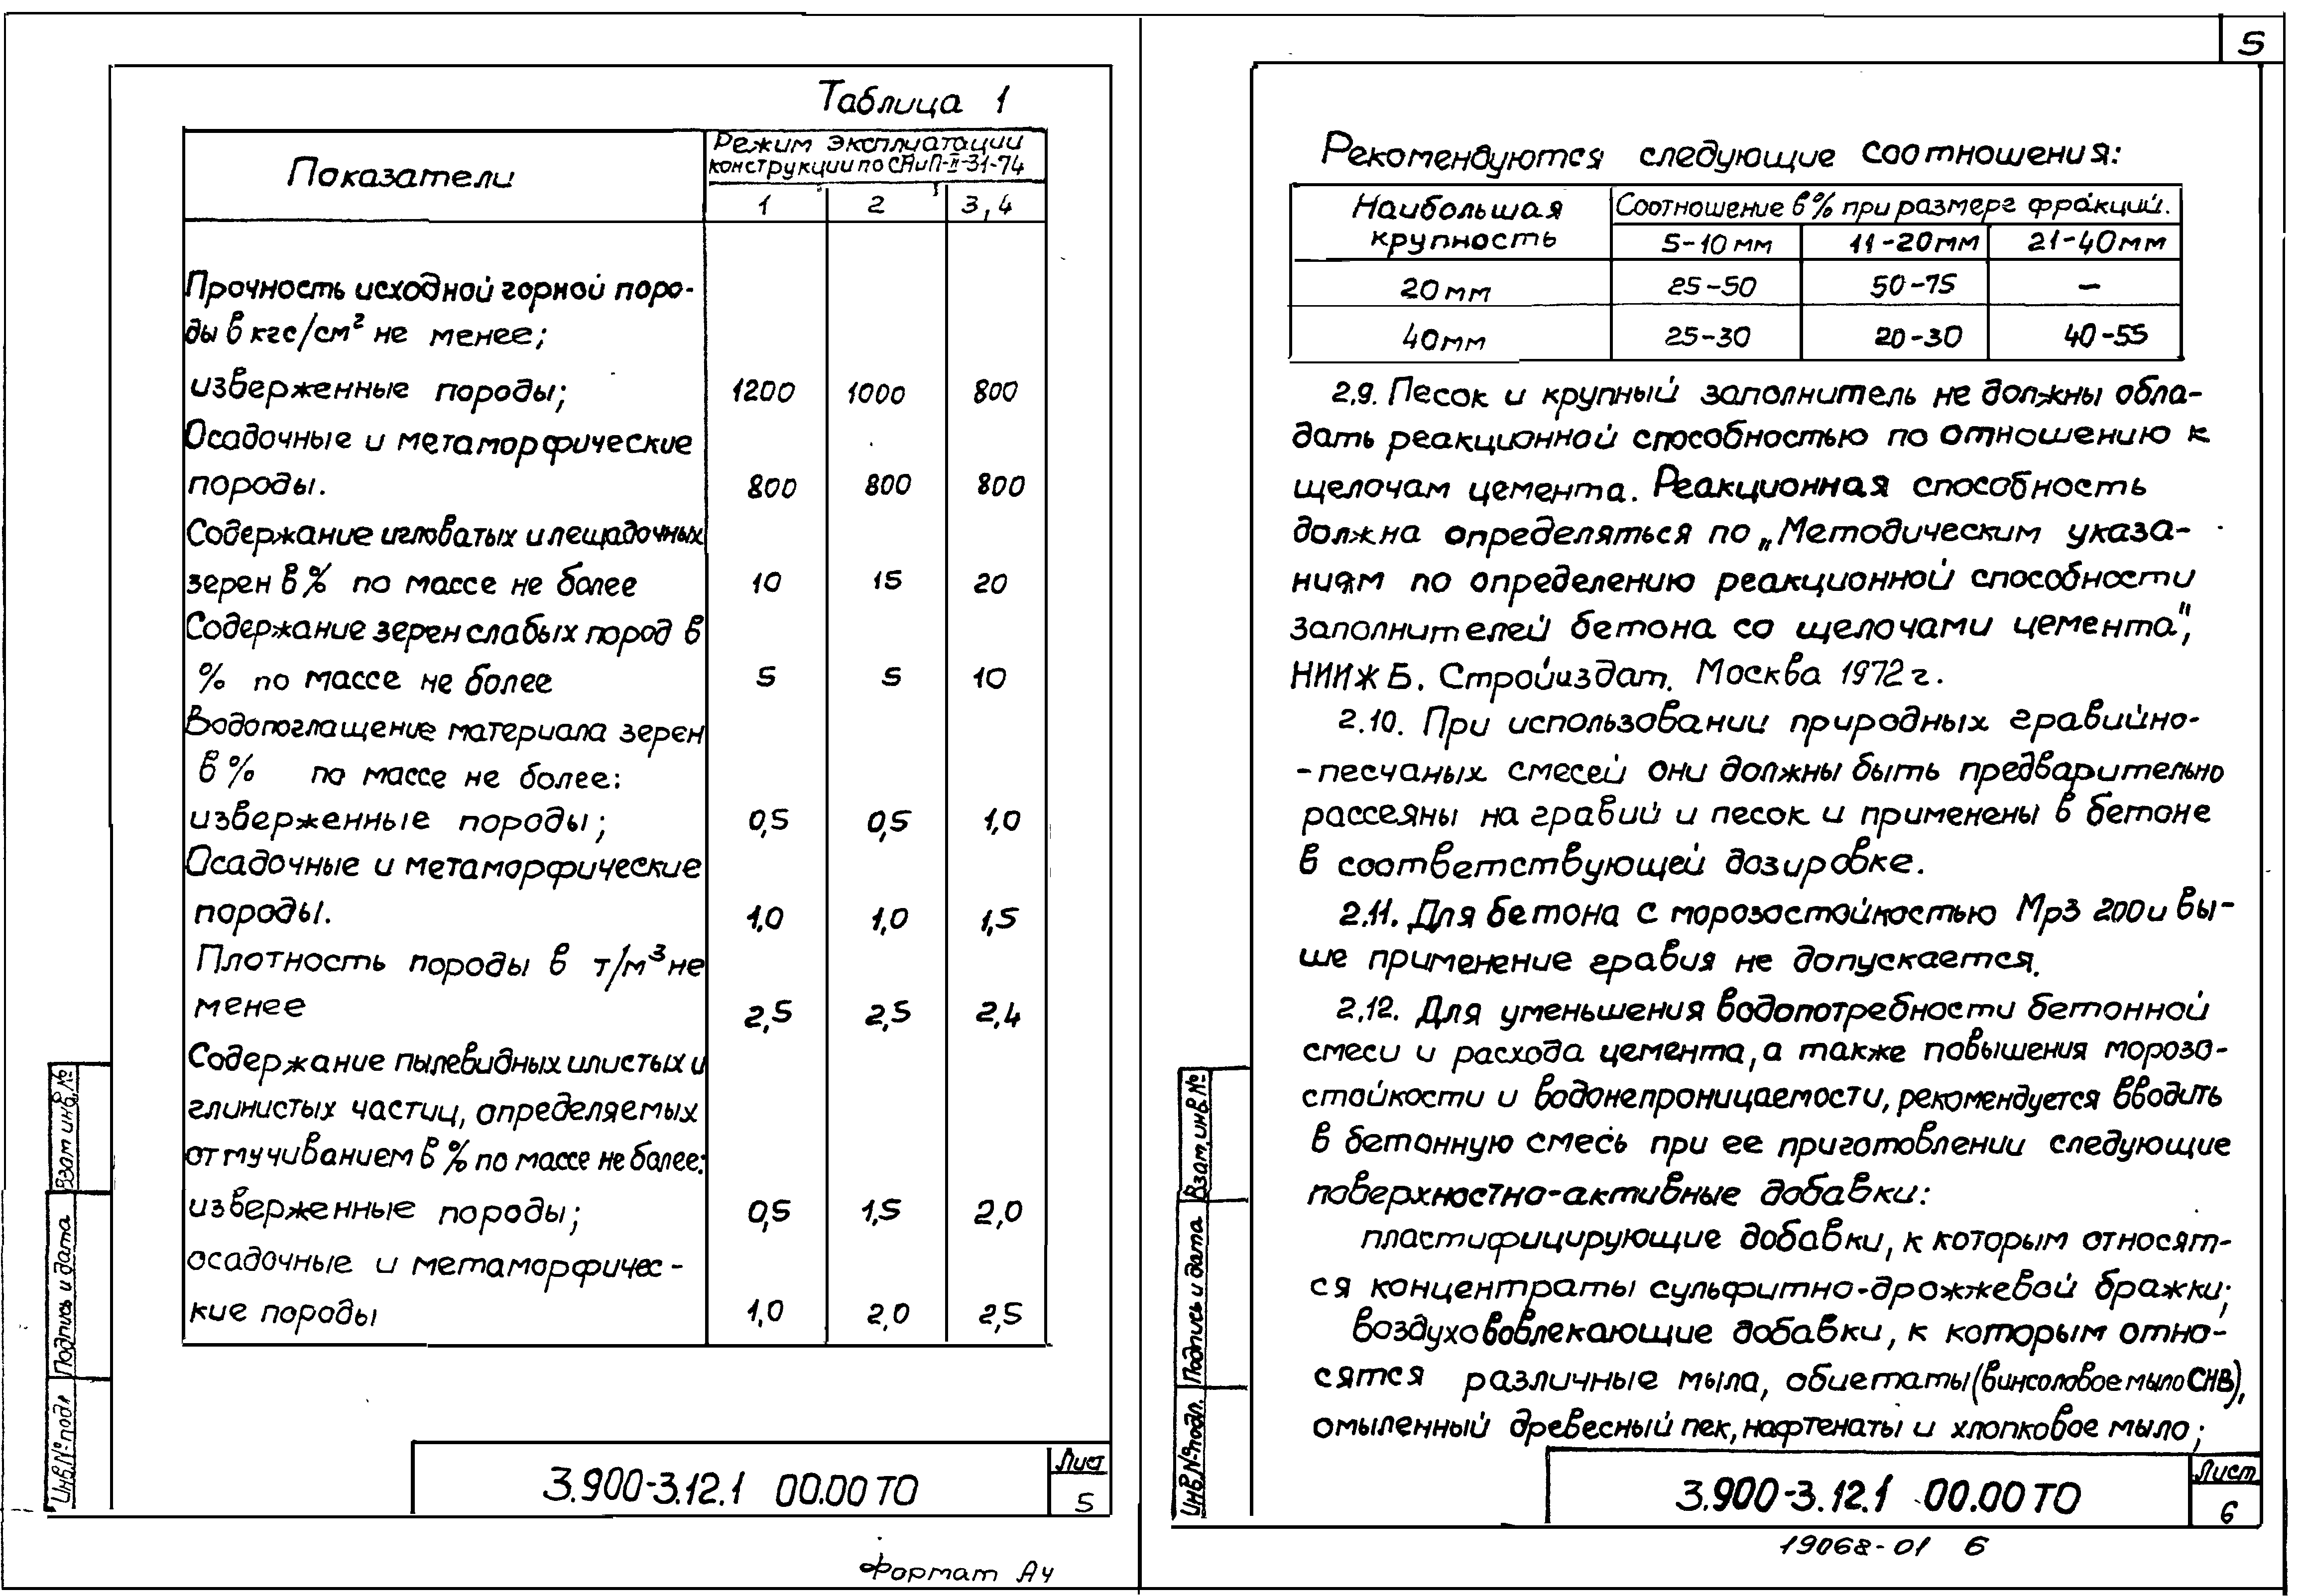 5
Таблица 1
Показатели
Режим эксплуатации
конструкции по СНиП-II-31-74
1 2 3,4
Прочность исходной горной поро-
ды в кгс/см² не менее;
изверженные породы; 1200 1000 800
Осадочные и метаморфические
породы. 800 800 800
Содержание игловатых и лещадочных
зерен в % по массе не более 10 15 20
Содержание зерен слабых пород в
% по массе не более 5 5 10
Водопоглащение материала зерен
в % по массе не более:
изверженные породы; 0,5 0,5 1,0
Осадочные и метаморфические
породы. 1,0 1,0 1,5
Плотность породы в т/м³ не
менее 2,5 2,5 2,4
Содержание пылевидных илистых и
глинистых частиц, определяемых
отмучиванием в % по массе не более:
изверженные породы; 0,5 1,5 2,0
осадочные и метаморфичес-
кие породы 1,0 2,0 2,5
Взам инв.№
Подпись и дата
Инв.№подл
3.900-3.12.1 00.00 ТО
Лист
5
Формат А4
Рекомендуются следующие соотношения:
Наибольшая
крупность
Соотношение в % при размере фракций.
5-10 мм 11-20мм 21-40мм
20мм 25-50 50-75 —
40мм 25-30 20-30 40-55
2,9. Песок и крупный заполнитель не должны обла-
дать реакционной способностью по отношению к
щелочам цемента. Реакционная способность
должна определяться по „Методическим указа-
ниям по определению реакционной способности
заполнителей бетона со щелочами цемента",
НИИЖБ. Стройиздат. Москва 1972г.
2.10. При использовании природных гравийно-
-песчаных смесей они должны быть предварительно
рассеяны на гравий и песок и применены в бетоне
в соответствующей дозировке.
2.11. Для бетона с морозостойкостью Мрз 200 и вы-
ше применение гравия не допускается.
2.12. Для уменьшения водопотребности бетонной
смеси и расхода цемента, а также повышения морозо-
стойкости и водонепроницаемости, рекомендуется вводить
в бетонную смесь при ее приготовлении следующие
поверхностно-активные добавки:
пластифицирующие добавки, к которым относят-
ся концентраты сульфитно-дрожжевой бражки;
воздухововлекающие добавки, к которым отно-
сятся различные мыла, абиетаты (винсоловое мыло СНВ),
омыленный древесный пек, нафтенаты и хлопковое мыло;
Взам.инв.№
Подпись и дата
Инв.№подл.
3.900-3.12.1 00.00 ТО
Лист
6
19068-01 6